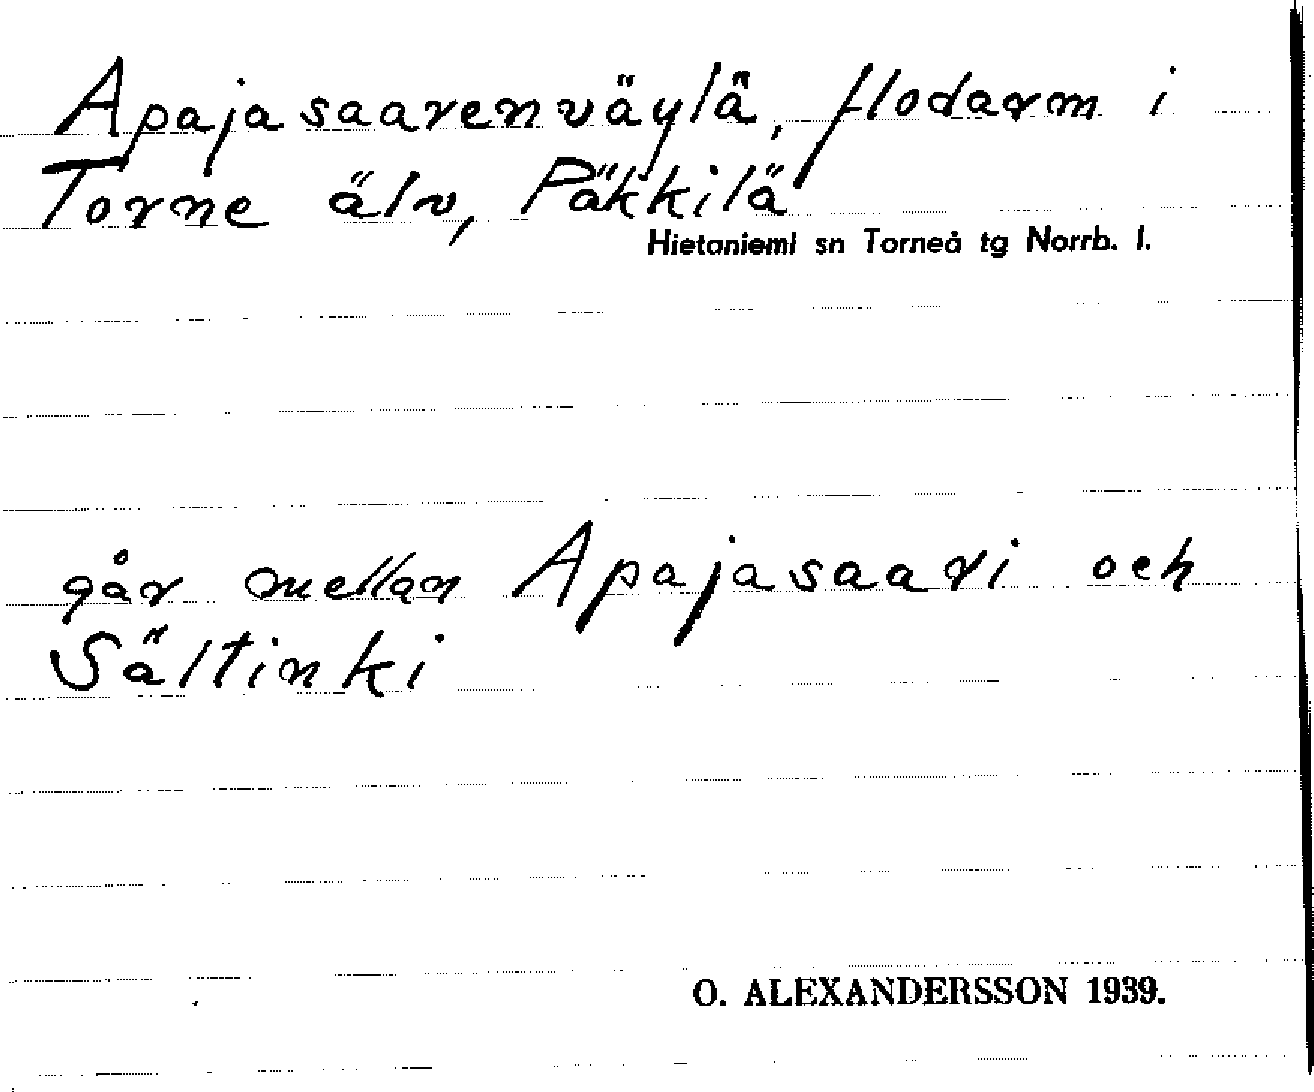 Apajasaarenväylä, flodarm i
Torne älv, Päkkilä
Hietaniemi sn Torneå tg Norrb. l.
går mellan Apajasaari och
Sältinki
O. ALEXANDERSSON 1939.